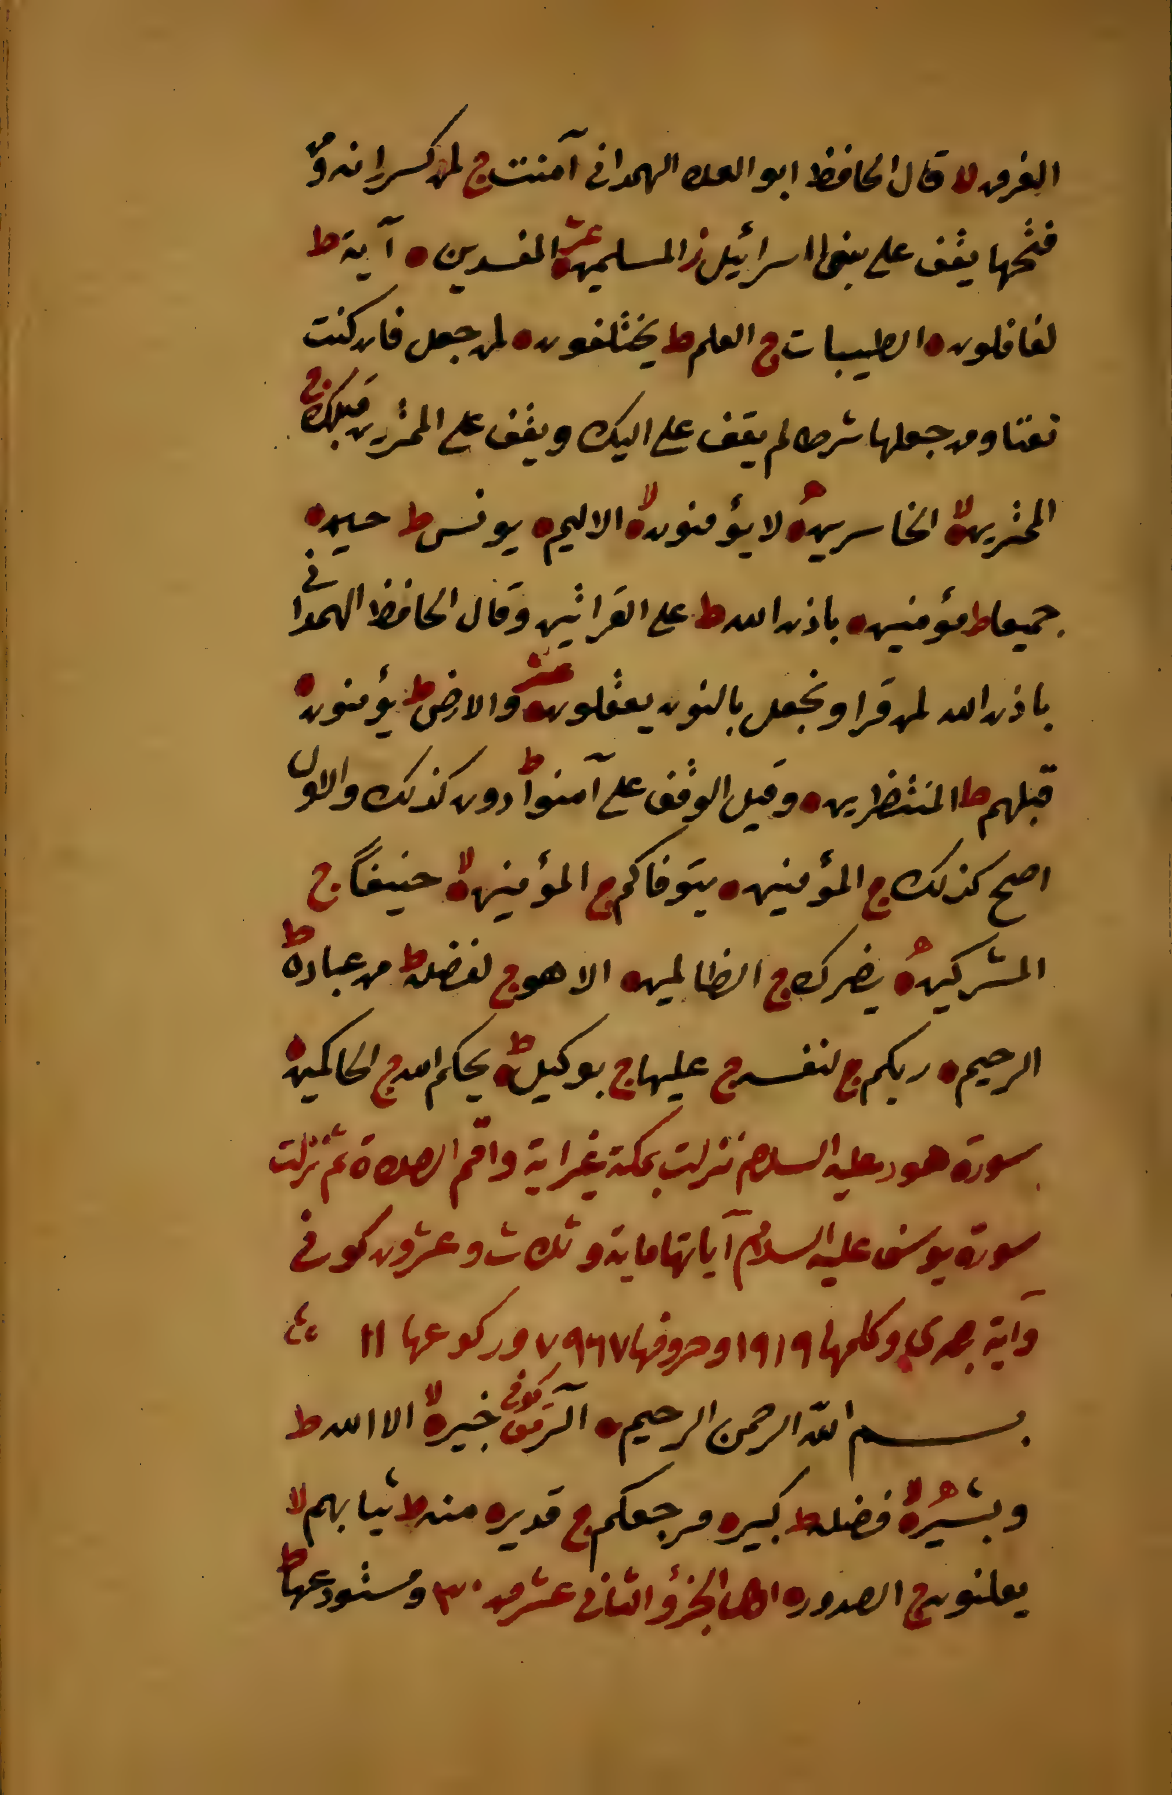 الغرق لا قال الحافظ ابو العلاء الهمدانى آمنت ج لمن كسر انه ومن
فتحها يقف على بنى اسرائيل ز المسلمين ه عشر المفسدين ه آية ط
لغافلون ه الطيبات ج العلم ط يختلفون ه لمن جعل فان كنت
نعتا ومن جعلها شرطا لم يقف على اليك ويقف على الممترين قبلك ج
الممترين ه لا الخاسرين ه لا يؤمنون ه لا الاليم ه يونس ط حين ه
جميعا ط مؤمنين ه باذن الله ط على القرائتين وقال الحافظ الهمدانى
باذن الله لمن قرا ونجعل بالنون يعقلون ه عشر والارض ط يؤمنون ه
قبلهم ط المنتظرين ه وقيل الوقف على آمنوا ط دون كذلك والاول
اصح كذلك ج المؤمنين ه يتوفاكم ج المؤمنين ه لا حنيفاً ج
المشركين ه يضرك ج الظالمين ه الا هو ج لفضله ط من عباده ط
الرحيم ه ربكم ج لنفسه ج عليها ج بوكيل ه ط يحكم الله ج الحاكمين ه
سورة هود عليه السلام نزلت بمكة غير اية واقم الصلاة ثم نزلت
سورة يوسف عليه السلام آياتها ماية وثلاث وعشرون كوفى
وآية بصرى وكلمها ١٩١٩ وحروفها ٧٩٦٧ وركوعها ١١
بسم الله الرحمن الرحيم ه آلر كوفى خبير ه لا الا الله ط
وبشير ه لا فضله ط كبير ه مرجعكم ج قدير ه منه ط ثيابهم لا
يعلنون ج الصدور ه الجزؤ الثانى عشر من ٣٠ ومستودعها ط